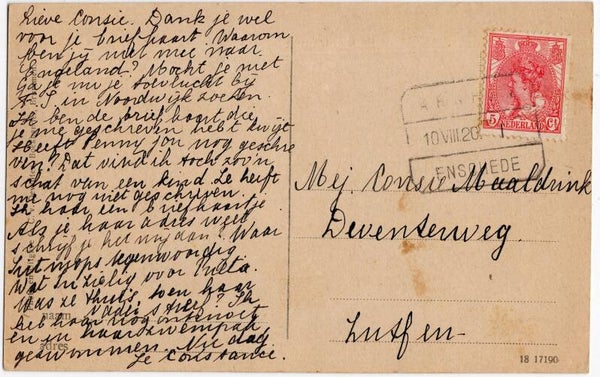 Lieve Consie. Dank je wel
voor je briefkaart Waarom
ben jij niet mee naar
Engeland? Mocht je niet
Ga je nu je toevlucht bij
in Noordwijk zoeken.
Ik ben de brief kwijt die
je me geschreven hebt kwijt
Heeft Penny jou nog geschre
ven? Dat vind ik toch zoo'n
schat van een kind. Ze heeft
me nog niet geschreven.
Ik had een briefkaartje
Als je haar adres weet
schrijf je het mij dan? Waar
zit tegenwoordig
Wat zielig voor
Was ze thuis, toen haar
Vader stierf? Ik
heb haar nog
en in haar zwempak
gezwommen. Nu dag
Je Constance.
naam
adres
5 NEDERLAND Ct
10 VIII 20
ENSCHEDE
Mej. Consie Maaldrink
Deventerweg.
Zutfen-
18 17190